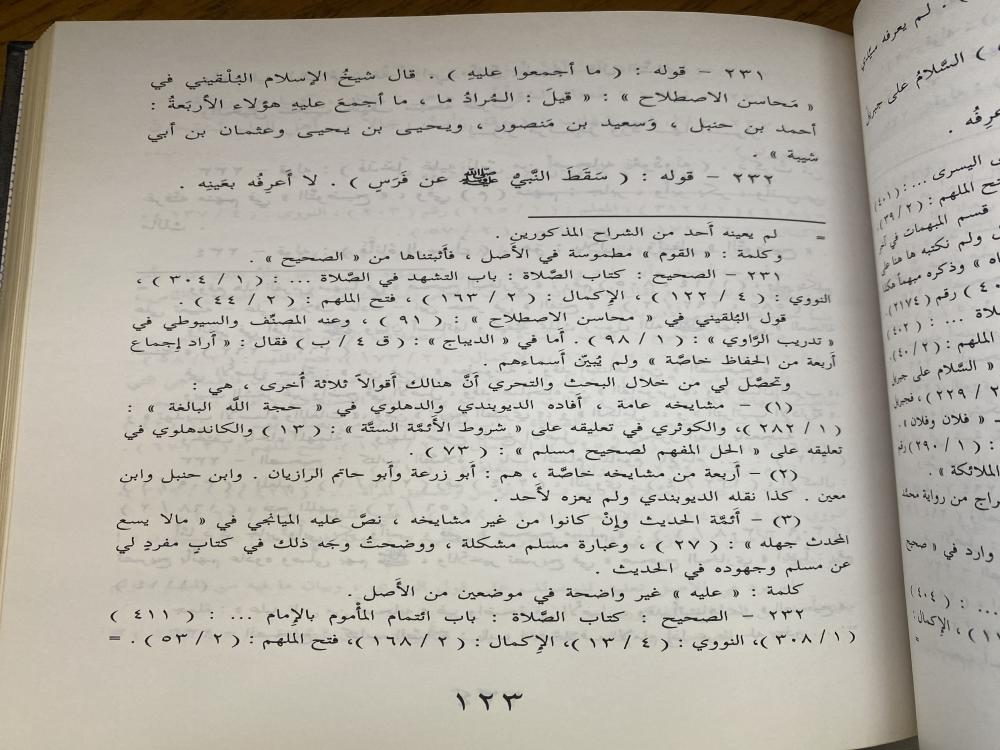 ٢٣١ - قوله : ( ما أجمعوا عليهِ ) . قال شيخُ الإسلام البُلْقيني في
« مَحاسن الاصطلاح » : « قيلَ : المُرادُ ما ، ما أجمعَ عليهِ هؤلاء الأربَعةُ :
أحمد بن حنبل ، وَسعيد بن مَنصور ، ويحيى بن يحيى وعثمان بن أبي
شيبة » .
٢٣٢ - قوله : ( سَقَطَ النَّبيُّ ﷺ عن فَرَسٍ ) . لا أَعرِفُه بعَينِه .
= لم يعينه أَحد من الشراح المذكورين .
وكلمة : « القوم » مطموسة في الأَصل ، فأثبتناها من « الصحيح » .
٢٣١ - الصحيح : كتاب الصَّلاة : باب التشهد في الصَّلاة ... : ( ١ / ٣٠٤ ) ،
النووي : ( ٤ / ١٢٢ ) ، الإكمال : ( ٢ / ١٦٣ ) ، فتح الملهم : ( ٢ / ٤٤ ) .
قول البُلقيني في « محاسن الاصطلاح » : ( ٩١ ) ، وعنه المصنّف والسيوطي في
« تدريب الرَّاوي » : ( ١ / ٩٨ ) . أَما في « الديباج » : ( ق ٤ / ب ) فقال : « أَراد إجماع
أَربعة من الحفاظ خاصَّة » ولم يُبيّن أَسماءهم .
وتحصَّل لي من خلال البحث والتحري أَنَّ هنالك أَقوالاً ثلاثة أُخرى ، هي :
(١) - مشايخه عامة ، أَفاده الديوبندي والدهلوي في « حجة اللَّه البالغة » :
( ١ / ٢٨٢ )، والكوثري في تعليقه على « شروط الأَئمَّة الستَّة » : ( ١٣ ) والكاندهلوي في
تعليقه على « الحل المفهم لصحيح مسلم » : ( ٧٣ ) .
(٢) - أَربعة من مشايخه خاصَّة ، هم : أَبو زرعة وأَبو حاتم الرازيان . وابن حنبل وابن
معين . كذا نقله الديوبندي ولم يعزه لأَحد .
(٣) - أَئمَّة الحديث وإنْ كانوا من غير مشايخه ، نصَّ عليه الميانجي في « مالا يسع
المحدث جهله » : ( ٢٧ ) ، وعبارة مسلم مشكلة ، ووضحتُ وجَه ذلك في كتابٍ مفردٍ لي
عن مسلم وجهوده في الحديث .
كلمة : « عليه » غير واضحة في موضعين من الأَصل .
٢٣٢ - الصحيح : كتاب الصَّلاة : باب ائتمام المأْموم بالإِمام ... : ( ٤١١ )
( ١ / ٣٠٨ )، النووي : ( ٤ / ١٣ )، الإِكمال : ( ٢ / ١٦٨ )، فتح الملهم : ( ٢ / ٥٣ ) . =
١٢٣
. لم يعرفه
السَّلامُ على
ى اليسرى ... : ( ٤٠١ )
فتح الملهم : ( ٢ / ٣٩ ) .
قسم المبهمات في
ولم نكتبه ها هنا على
» وذكره مبهماً هكذا
رقم ( ٢١٧٤ ) .
... : ( ٤٠٢ )
الملهم : ( ٢ / ٤٠ ) .
« السَّلام على جبريل
/ ٢٢٩ ) ، فجبريل
- « فلان وفلان » .
: ( ١ / ٢٩٠ ) رقم
الملائكة » .
راج من رواية محمَّد
وارد في « صحيح
... : ( ٤٠٤ )
) ، الإكمال :
=